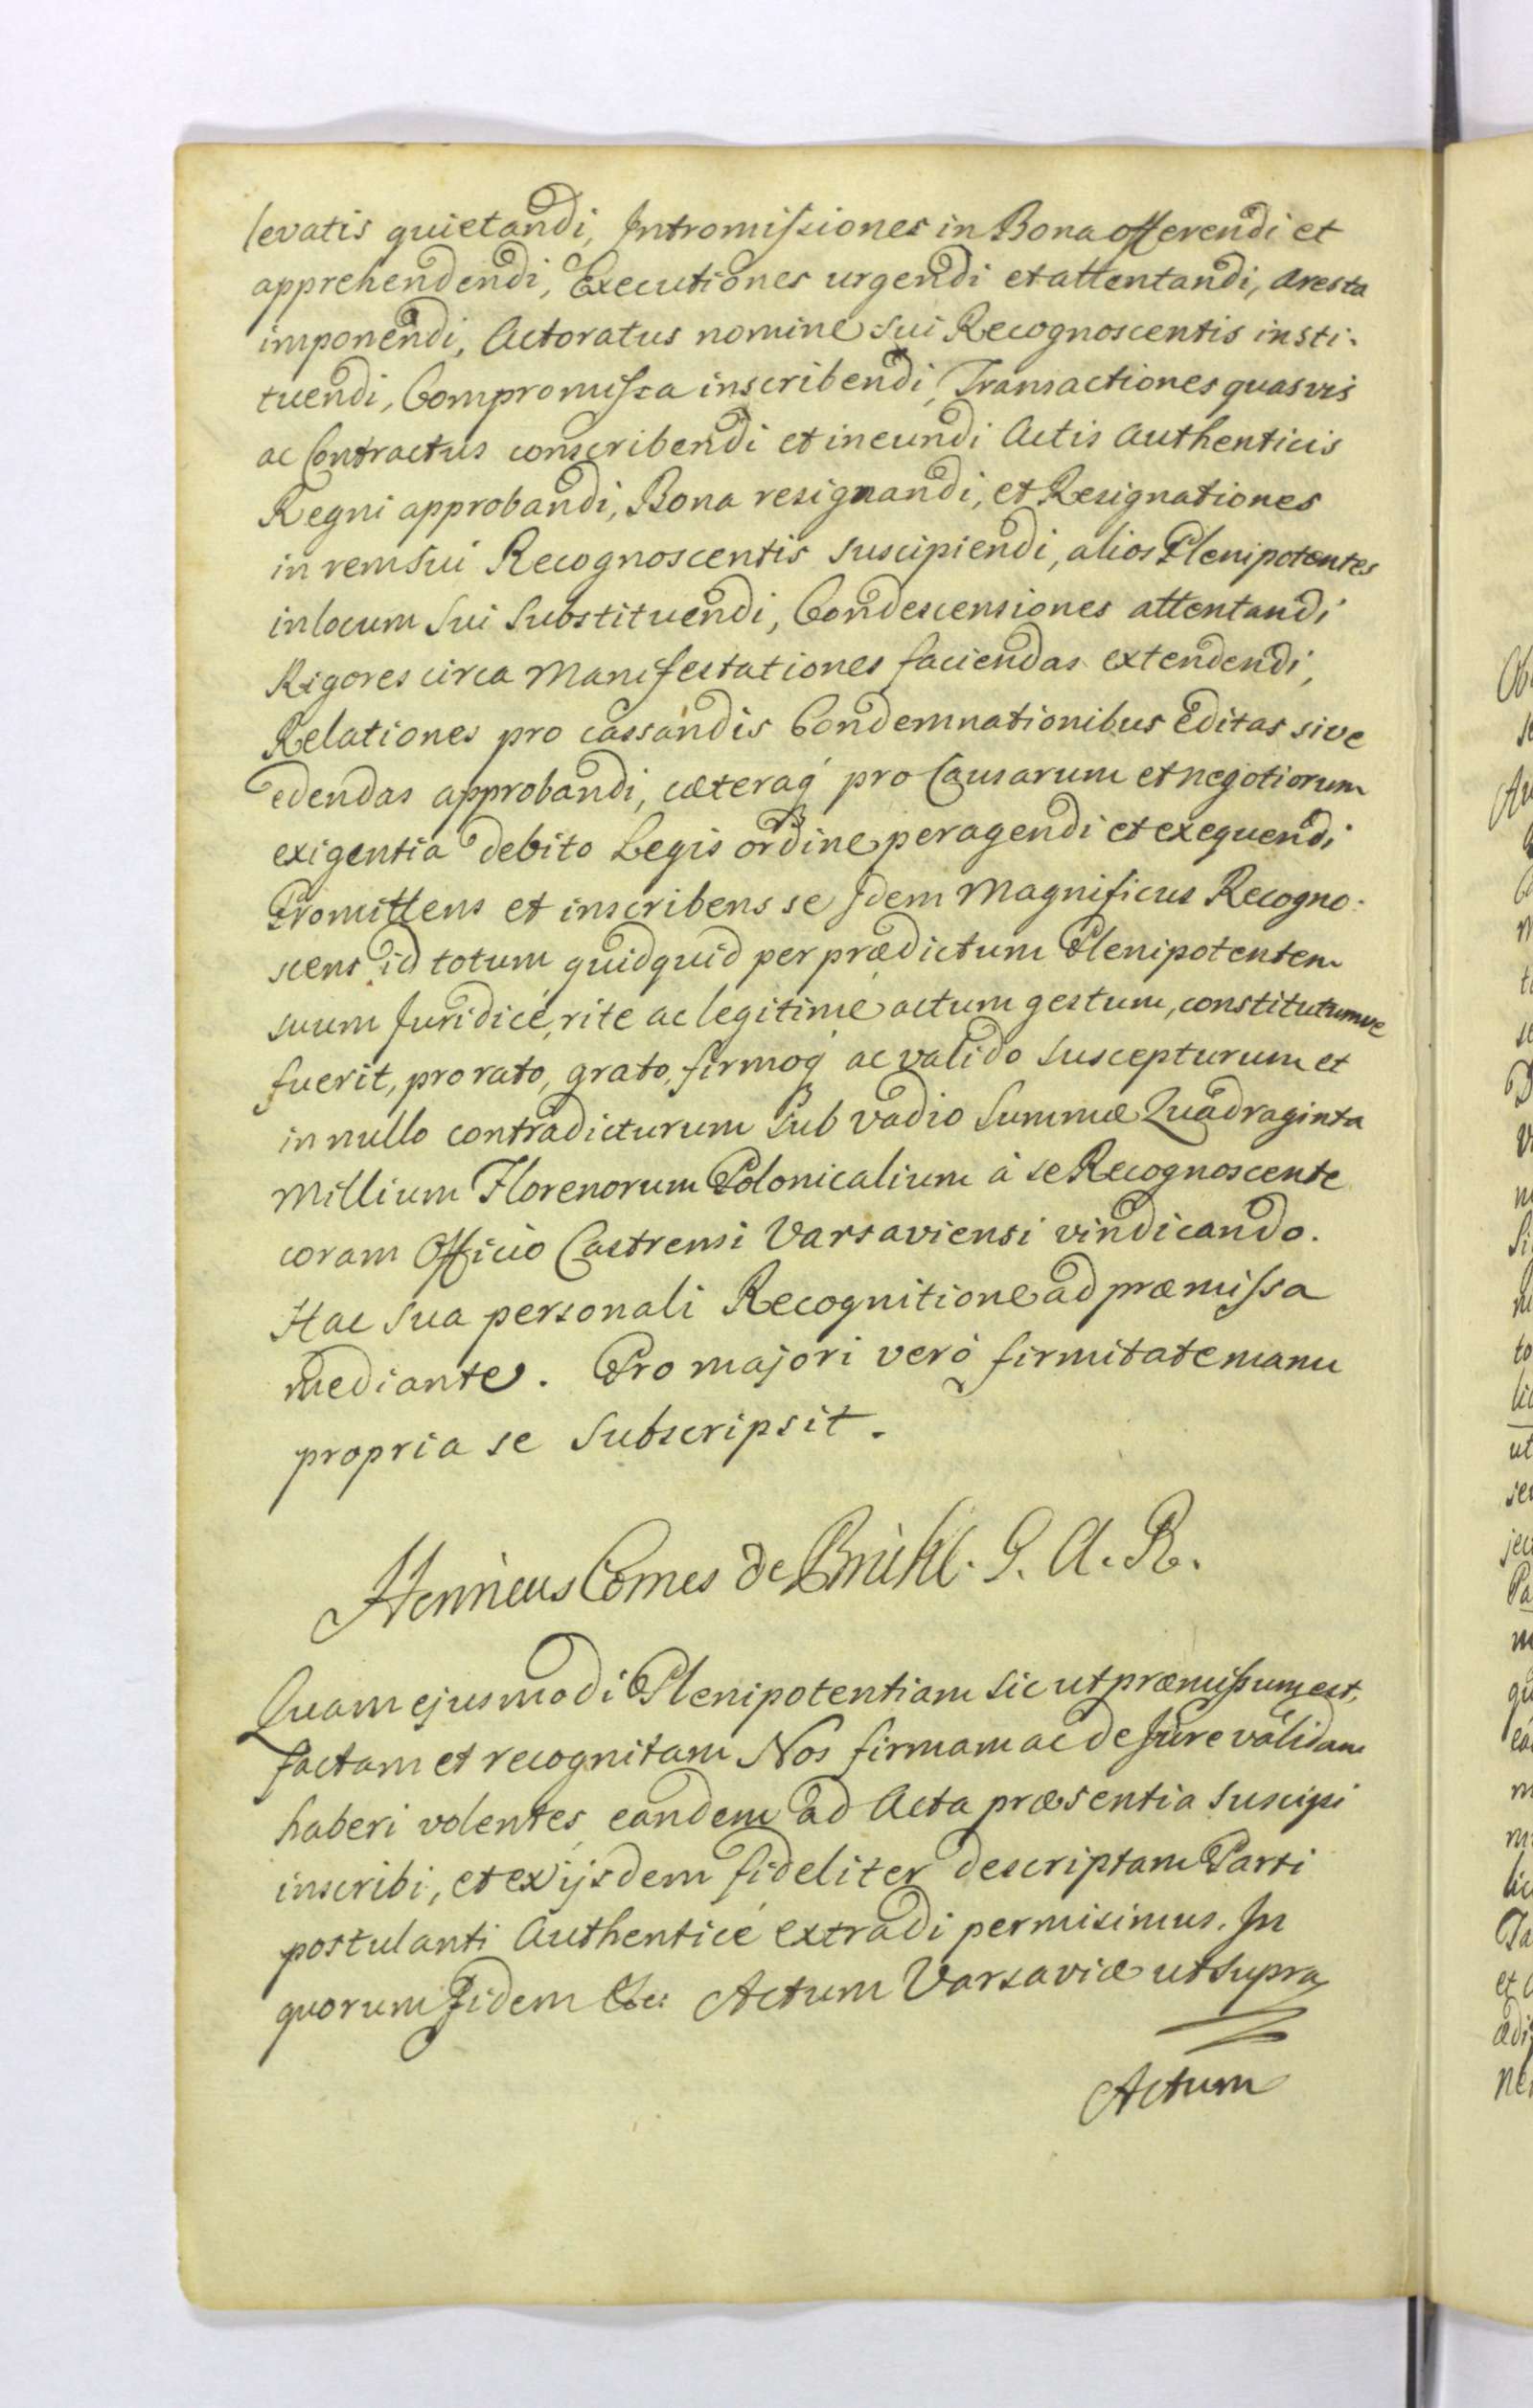 levatis quietandi, Intromissiones in Bona offerendi et
apprehendendi, Executiones urgendi et attentandi, aresta
imponendi, Actoratus nomine sui Recognoscentis insti-
tuendi, Compromissa inscribendi, Transactiones quasvis
ac Contractus conscribendi et ineundi Actis Authenticis
Regni approbandi, Bona resignandi, et Resignationes
in rem sui Recognoscentis suscipiendi, alios Plenipotentes
in locum sui substituendi, Condescensiones attentandi
Rigores circa Manifestationes faciendas extendendi,
Relationes pro cassandis Condemnationibus editas sive
edendas approbandi, cæteraq́ pro Causarum et negotiorum
exigentia debito Legis ordine peragendi et exequendi
Promittens et inscribens se Idem Magnificus Recogno-
scens id totum quidquid per prædictum Plenipotentem
suum Juridicé, rite ac legitimé actum gestum, constitutumve
fuerit, pro rato, grato, firmoq́ ac valido suscepturum et
in nullo contradicturum sub vadio Summæ Quadraginta
Millium Florenorum Polonicalium à se Recognoscente
coram Officio Castrensi Varsaviensi vindicando.
Hac sua personali Recognitione ad præmissa
mediante. Pro majori veró firmitate manu
propria se subscripsit.
Henricus Comes de Brühl. G. A. R.
Quam ejusmodi Plenipotentiam sic ut præmissum est,
factam et recognitam Nos firmam ac de Jure validam
haberi volentes, eandem ad Acta præsentia suscipi
inscribi, et ex ijsdem fideliter descriptam Parti
postulanti Authenticé extradi permisimus. In
quorum Fidem &c: Actum Varsaviæ ut supra
Actum